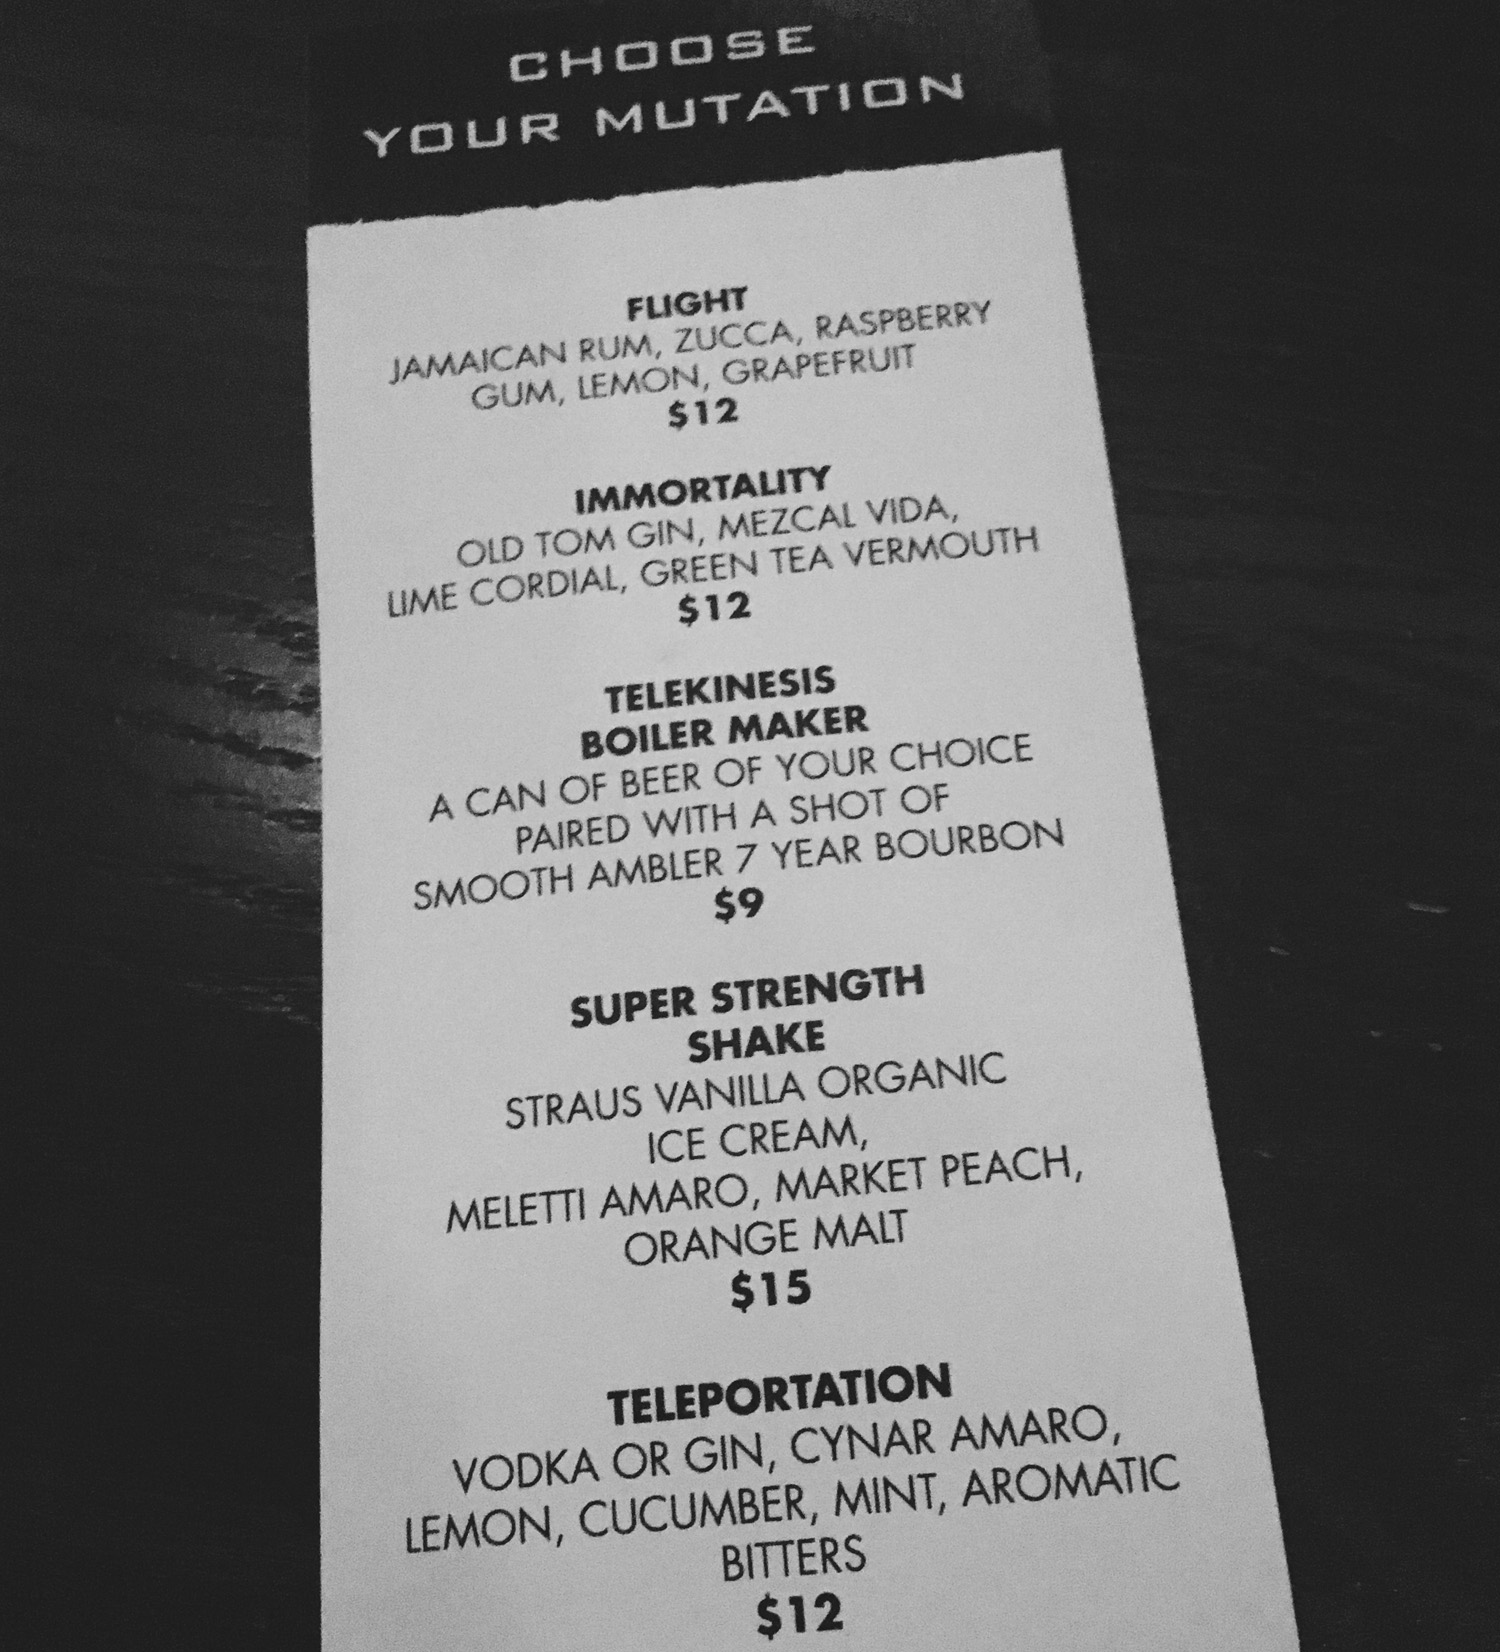 CHOOSE
YOUR MUTATION
FLIGHT
JAMAICAN RUM, ZUCCA, RASPBERRY
GUM, LEMON, GRAPEFRUIT
$12
IMMORTALITY
OLD TOM GIN, MEZCAL VIDA,
LIME CORDIAL, GREEN TEA VERMOUTH
$12
TELEKINESIS
BOILER MAKER
A CAN OF BEER OF YOUR CHOICE
PAIRED WITH A SHOT OF
SMOOTH AMBLER 7 YEAR BOURBON
$9
SUPER STRENGTH
SHAKE
STRAUS VANILLA ORGANIC
ICE CREAM,
MELETTI AMARO, MARKET PEACH,
ORANGE MALT
$15
TELEPORTATION
VODKA OR GIN, CYNAR AMARO,
LEMON, CUCUMBER, MINT, AROMATIC
BITTERS
$12